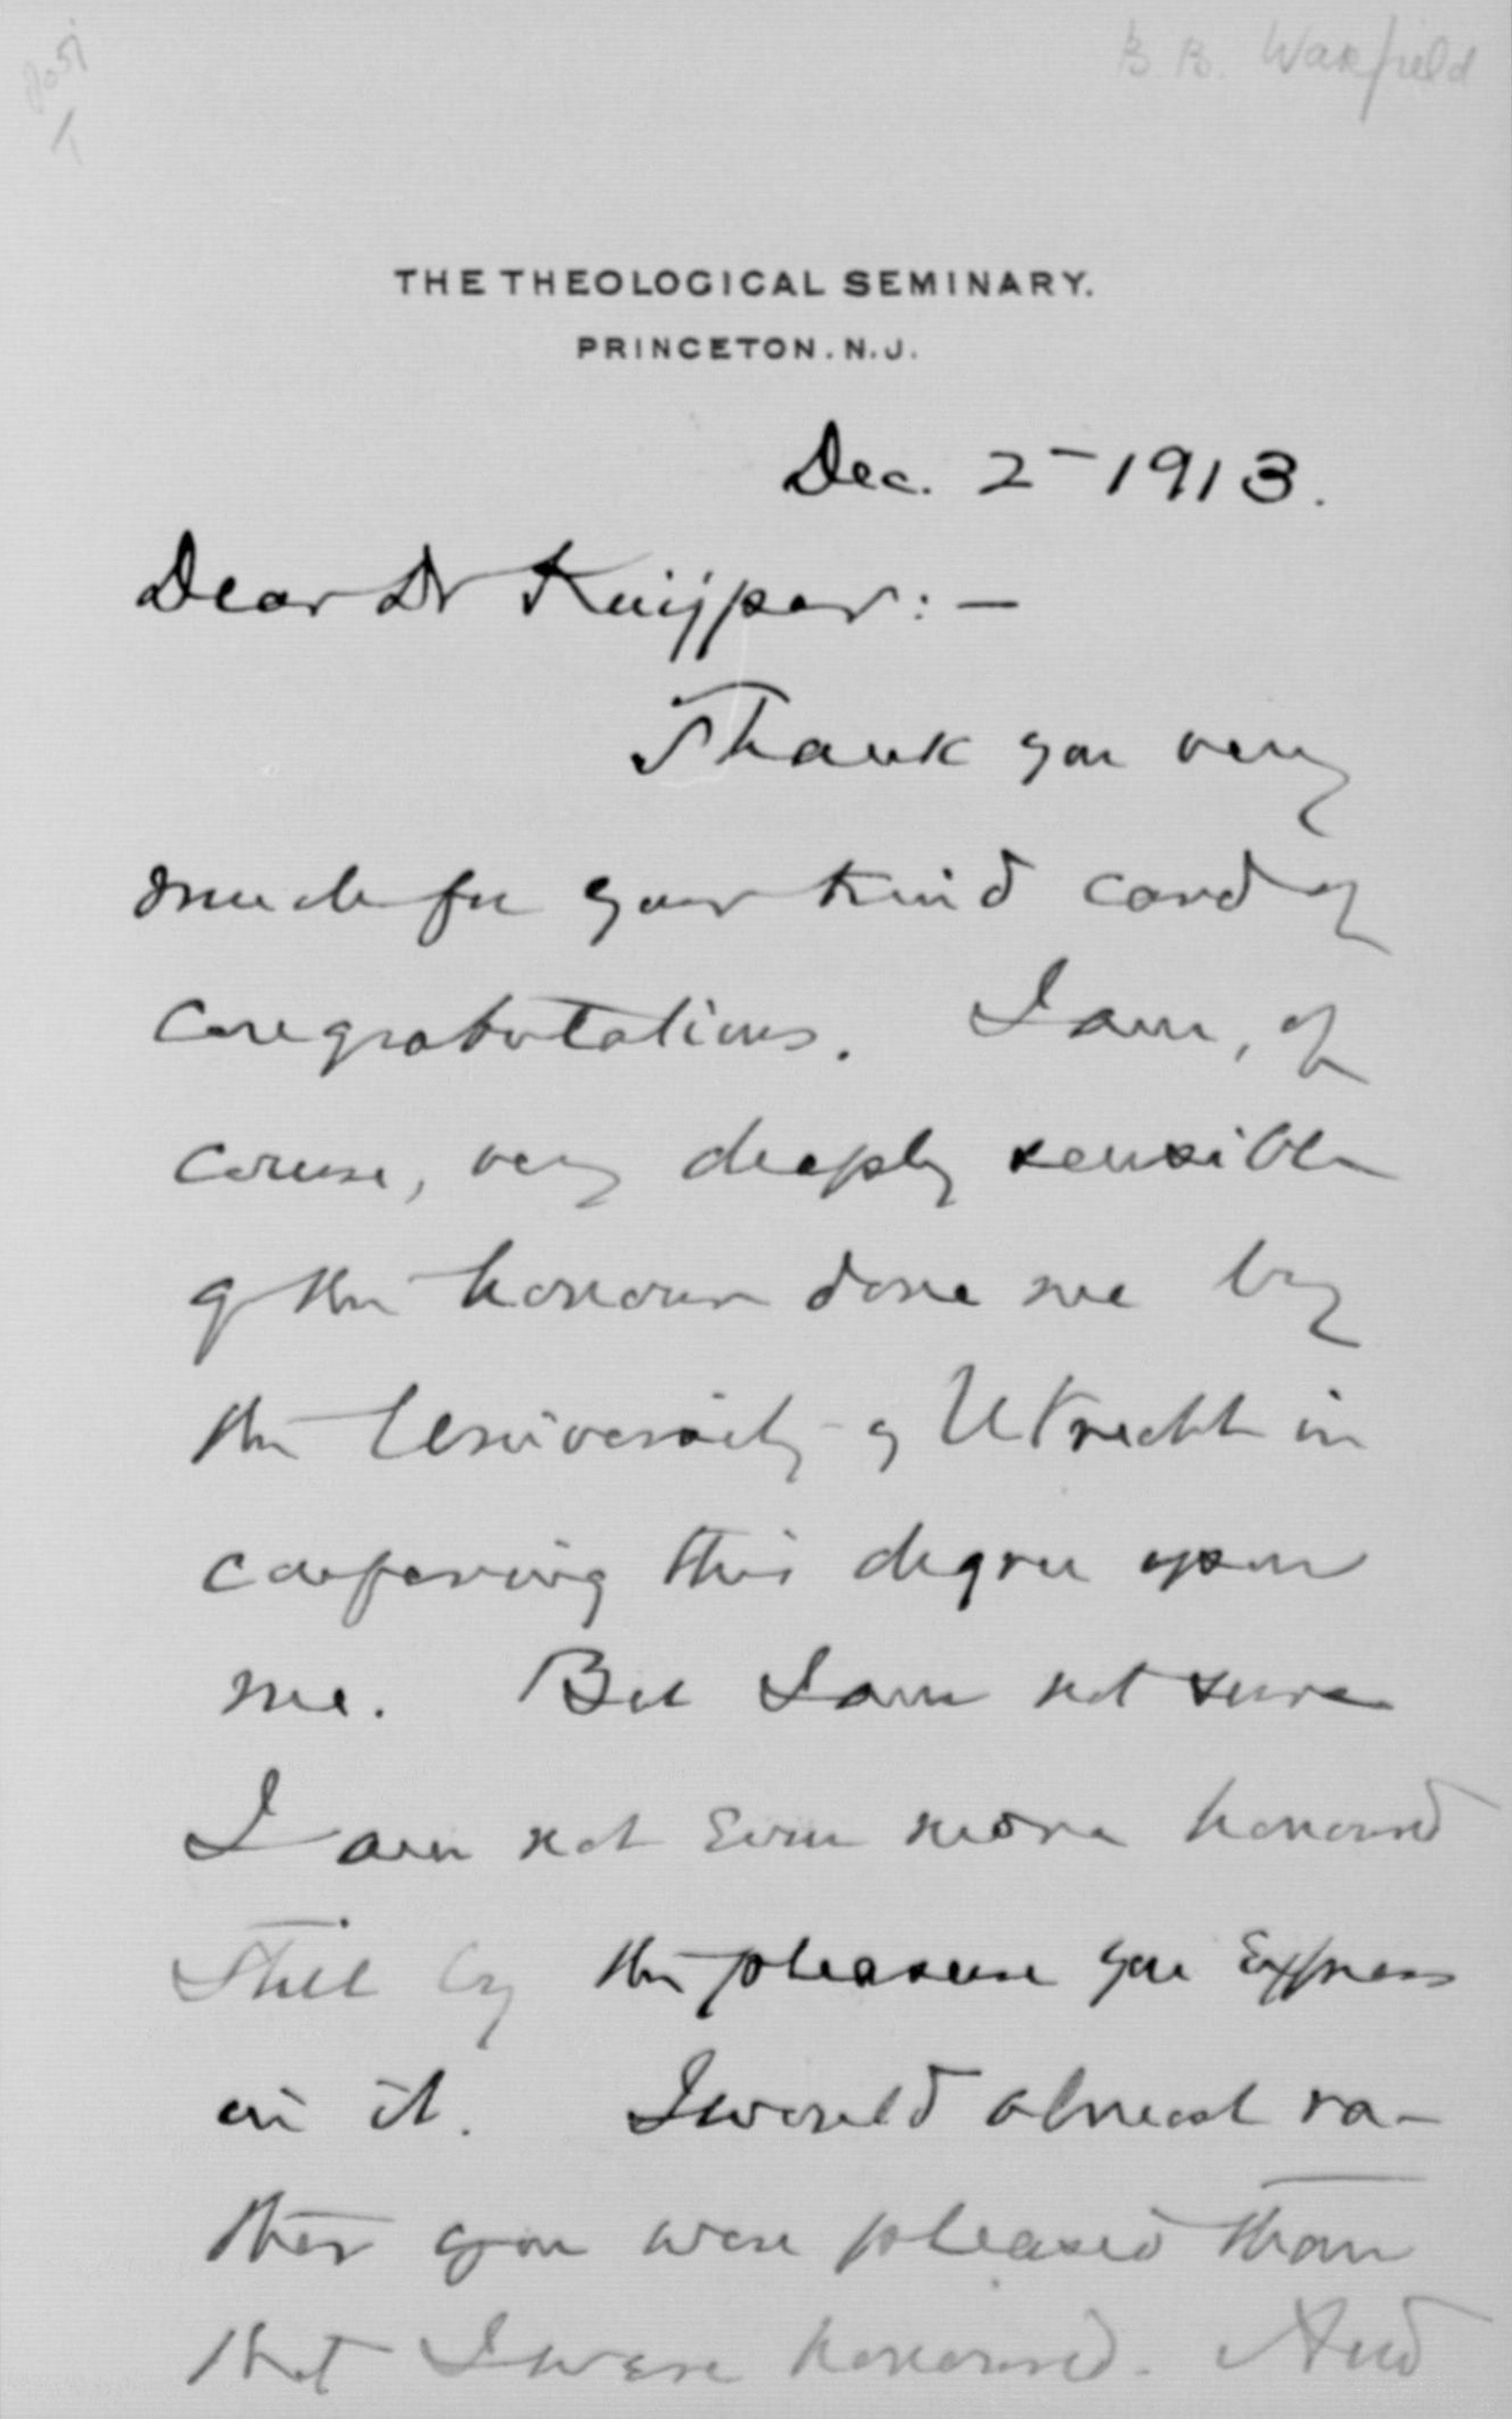 B. B. Warfield
THE THEOLOGICAL SEMINARY.
PRINCETON. N. J.
Dec. 2 - 1913.
Dear Dr Kuijper: —
Thank you very
much for your kind card of
congratulations. I am, of
course, very deeply sensible
of the honour done me by
the University of Utrecht in
conferring this degree upon
me. But I am not sure
I am not even more honoured
still by the pleasure you express
in it. I would almost ra-
ther you were pleased than
that I were honoured. And